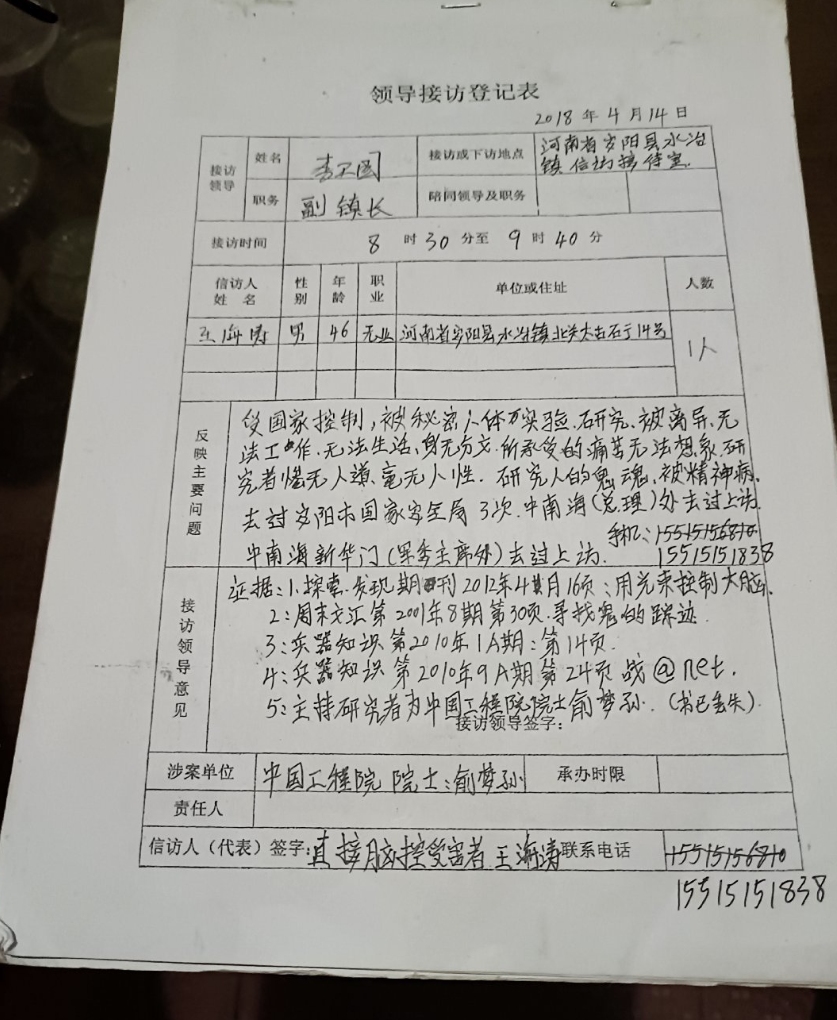 领导接访登记表
2018年4月14日
接访领导 姓名 接访或下访地点 河南省安阳县水冶镇信访接待室.
职务 副镇长 陪同领导及职务
接访时间 8时30分至9时40分
信访人姓名 性别 年龄 职业 单位或住址 人数
王海涛 男 46 无业 河南省安阳县水冶镇北关大古石亍14号 1人
反映主要问题
受国家控制,被秘密人体实验.研究.被离异.无
法工作.无法生活、身无分文.所承受的痛苦无法想象.研
究者惨无人道、毫无人性.研究人的鬼魂.被精神病.
去过安阳市国家安全局3次.中南海(总理)处去过上访.
手机:15515156810
中南海新华门(军委主席处)去过上访. 15515151838
接访领导意见
证据:1.探索.发现期刊2012年4月16页:用光束控制大脑.
2:周末文汇第2001年8期第30页.寻找鬼的踪迹.
3:兵器知识第2010年1A期:第14页.
4:兵器知识第2010年9A期第24页战@net.
5:主持研究者为中国工程院院士俞梦孙.(书已丢失).
接访领导签字:
涉案单位 中国工程院 院士:俞梦孙 承办时限
责任人
信访人(代表)签字:直接脑控受害者 王海涛 联系电话 15515156810
15515151838